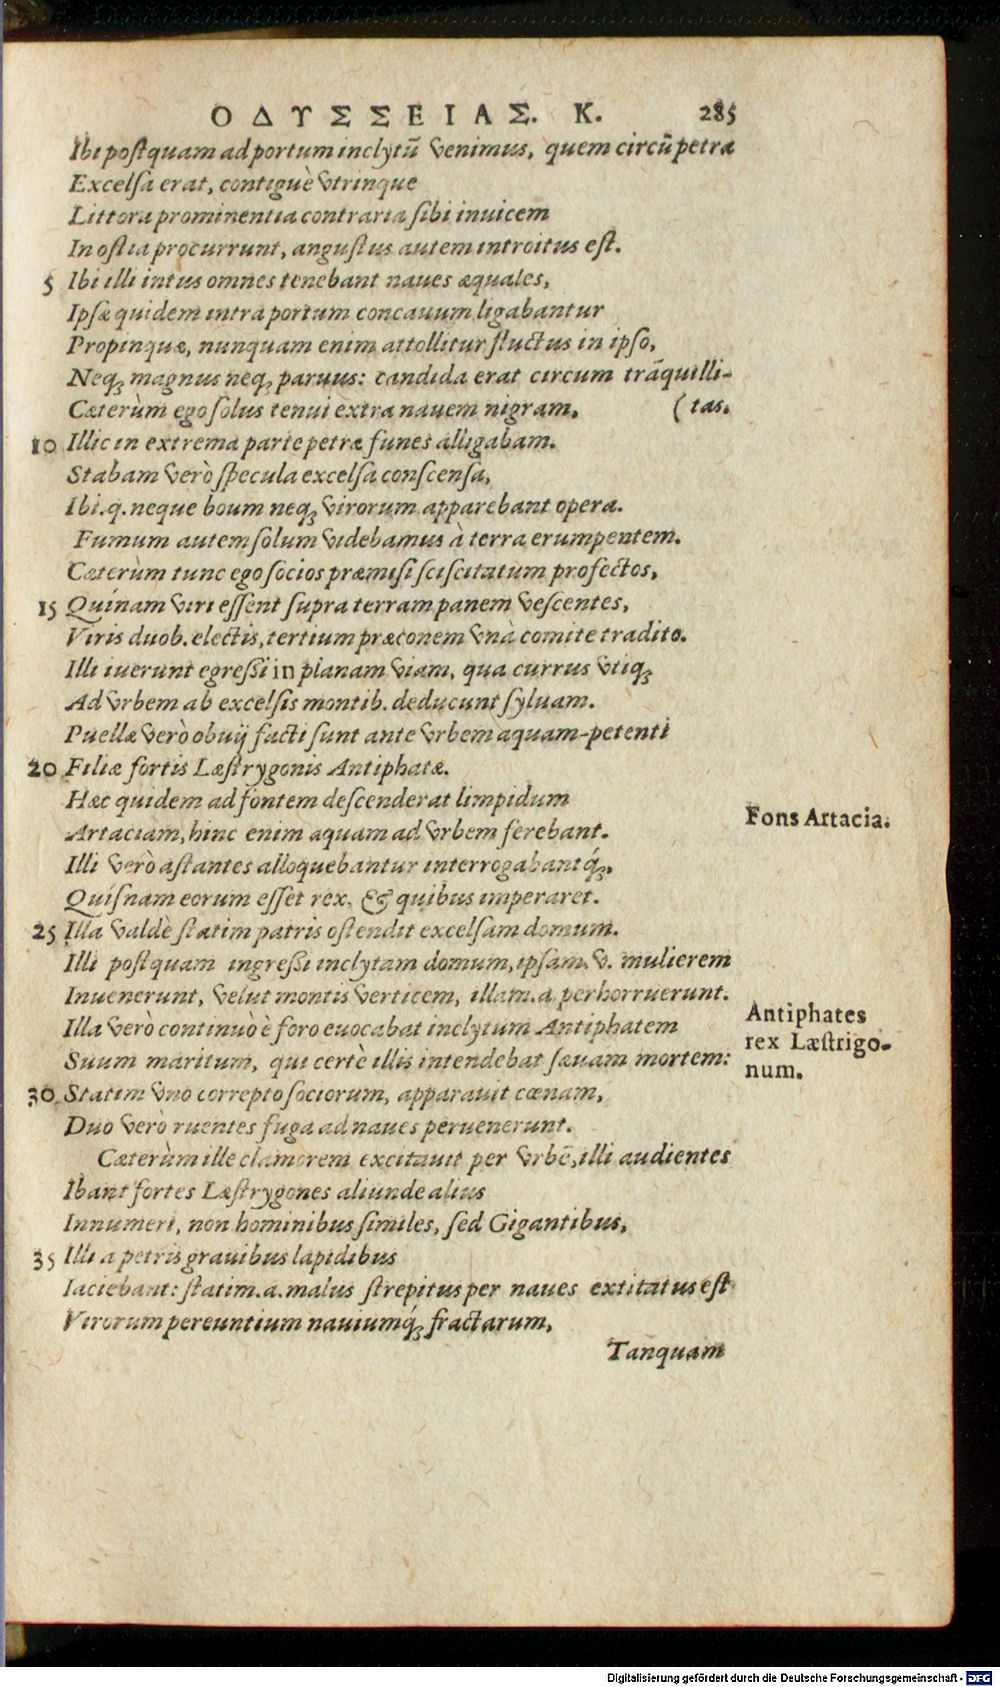 ΟΔΥΣΣΕΙΑΣ. Κ. 285
Ibi postquam ad portum inclytū venimus, quem circū petra
Excelsa erat, contiguè vtrinque
Littora prominentia contraria sibi inuicem
In ostia procurrunt, angustus autem introitus est.
5 Ibi illi intus omnes tenebant naues æquales,
Ipsæ quidem intra portum concauum ligabantur
Propinquæ, nunquam enim attollitur fluctus in ipso,
Neq; magnus neq; paruus: candida erat circum trāquilli-
Cæterùm ego solus tenui extra nauem nigram. (tas.
10 Illic in extrema parte petræ funes alligabam.
Stabam verò specula excelsa conscensa,
Ibi.q. neque boum neq; virorum apparebant opera.
Fumum autem solum videbamus à terra erumpentem.
Cæterùm tunc ego socios præmisi sciscitatum profectos,
15 Quínam viri essent supra terram panem vescentes,
Viris duob. electis, tertium præconem vnà comite tradito.
Illi iuerunt egressi in planam viam, qua currus vtiq;
Ad vrbem ab excelsis montib. deducunt syluam.
Puellæ verò obuij facti sunt ante vrbem aquam-petenti
20 Filiæ fortis Læstrygonis Antiphatæ.
Hæc quidem ad fontem descenderat limpidum
Artaciam, hinc enim aquam ad vrbem ferebant.
Fons Artacia.
Illi verò astantes alloquebantur interrogabantq́;.
Quisnam eorum esset rex, & quibus imperaret.
25 Illa valdè statim patris ostendit excelsam domum.
Illi postquam ingressi inclytam domum, ipsam. v. mulierem
Inuenerunt, velut montis verticem, illam.a. perhorruerunt.
Illa verò continuò è foro euocabat inclytum Antiphatem
Suum maritum, qui certè illis intendebat sæuam mortem:
Antiphates
rex Læstrigo-
num.
30 Statim vno correpto sociorum, apparauit cœnam,
Duo verò ruentes fuga ad naues peruenerunt.
Cæterùm ille clamorem excitauit per vrbē, illi audientes
Ibant fortes Læstrygones aliunde alius
Innumeri, non hominibus similes, sed Gigantibus,
35 Illi a petris grauibus lapidibus
Iaciebant: statim.a. malus strepitus per naues extitatus est
Virorum pereuntium nauiumq́; fractarum,
Tanquam
Digitalisierung gefördert durch die Deutsche Forschungsgemeinschaft - DFG